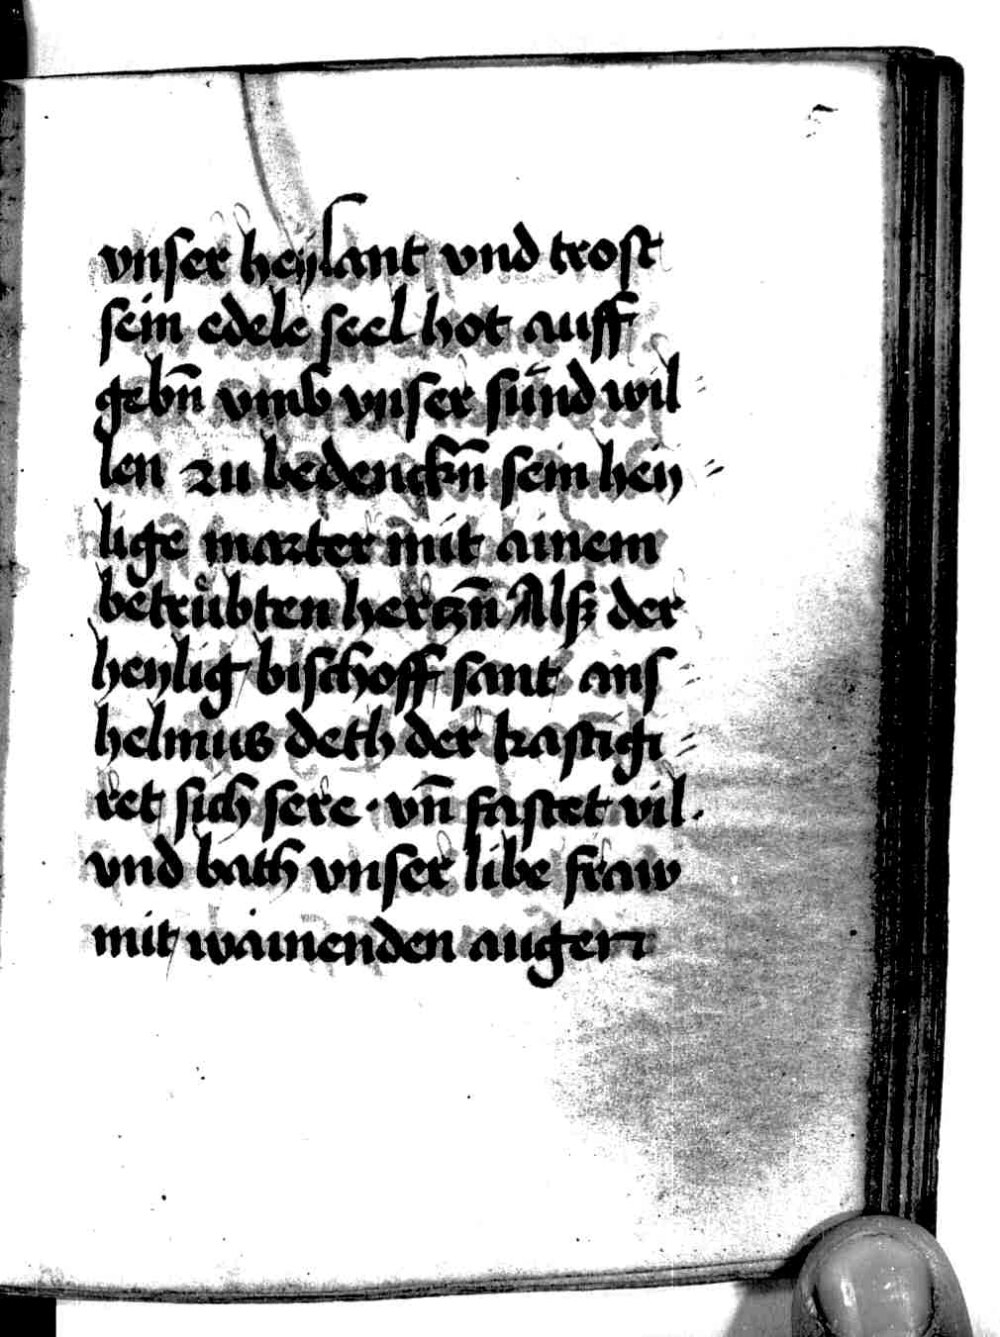 5
vnser heÿlant vnd trost
sein edele seel hot auff
gebn̄ vmb vnser sünd wil〃
len zu bedenckn̄ sein hey〃
lige marter mit ainem
betrůbten hertzn̄ Alß der
heylig bischoff sant ans〃
helmus deth der kastigi〃
ret sich sere · vn̄ fastet vil.
vnd bath vnser libe fraw
mit wainenden augen